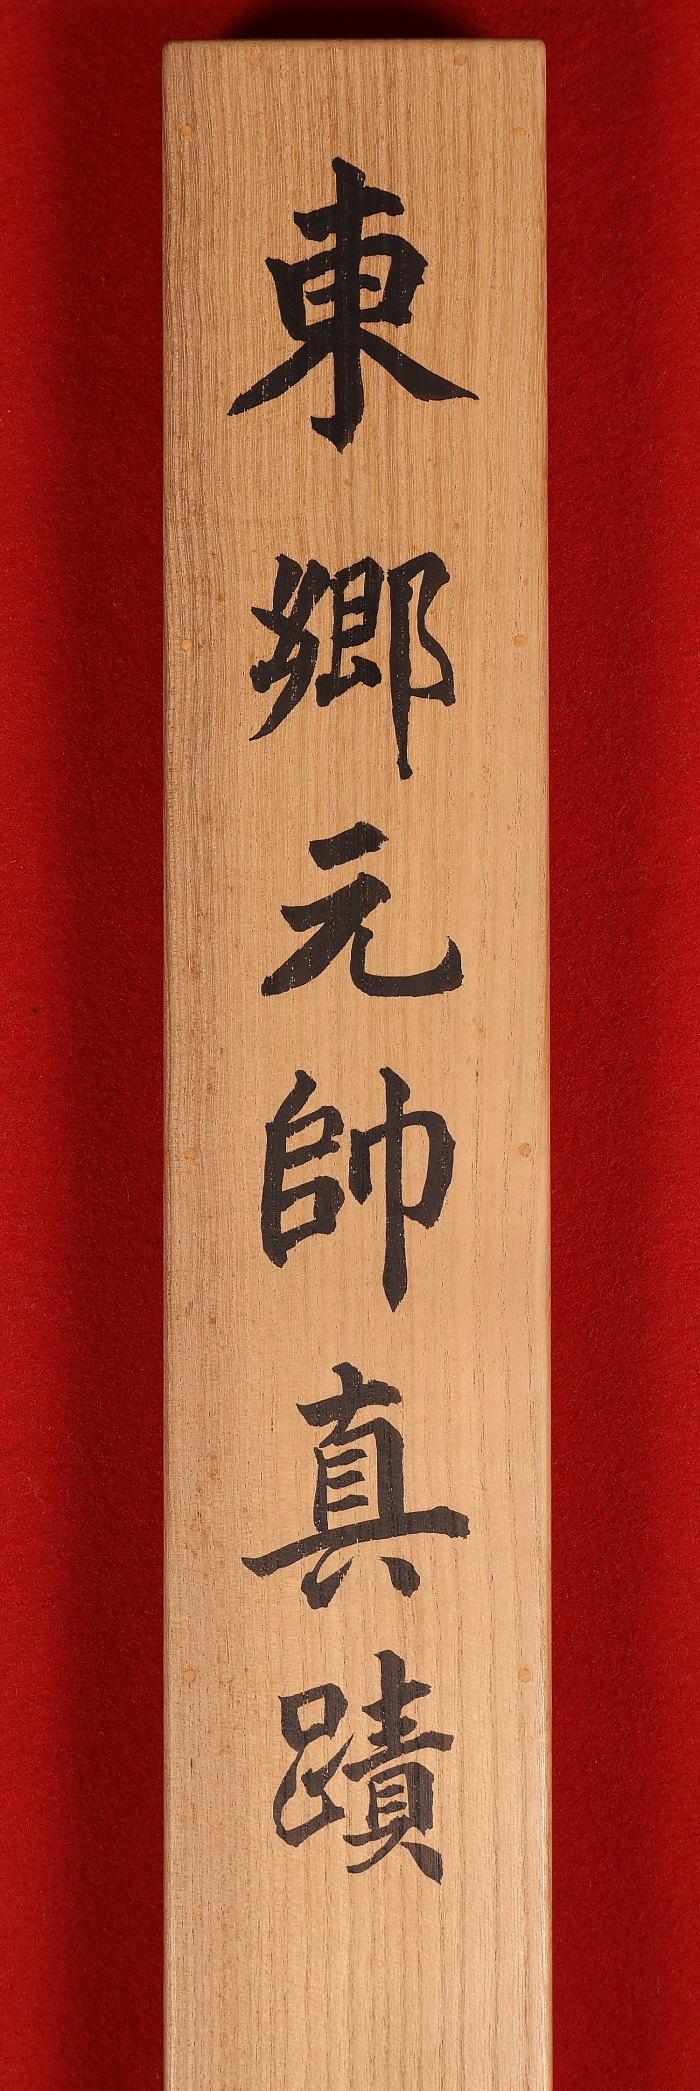 東郷元帥真蹟